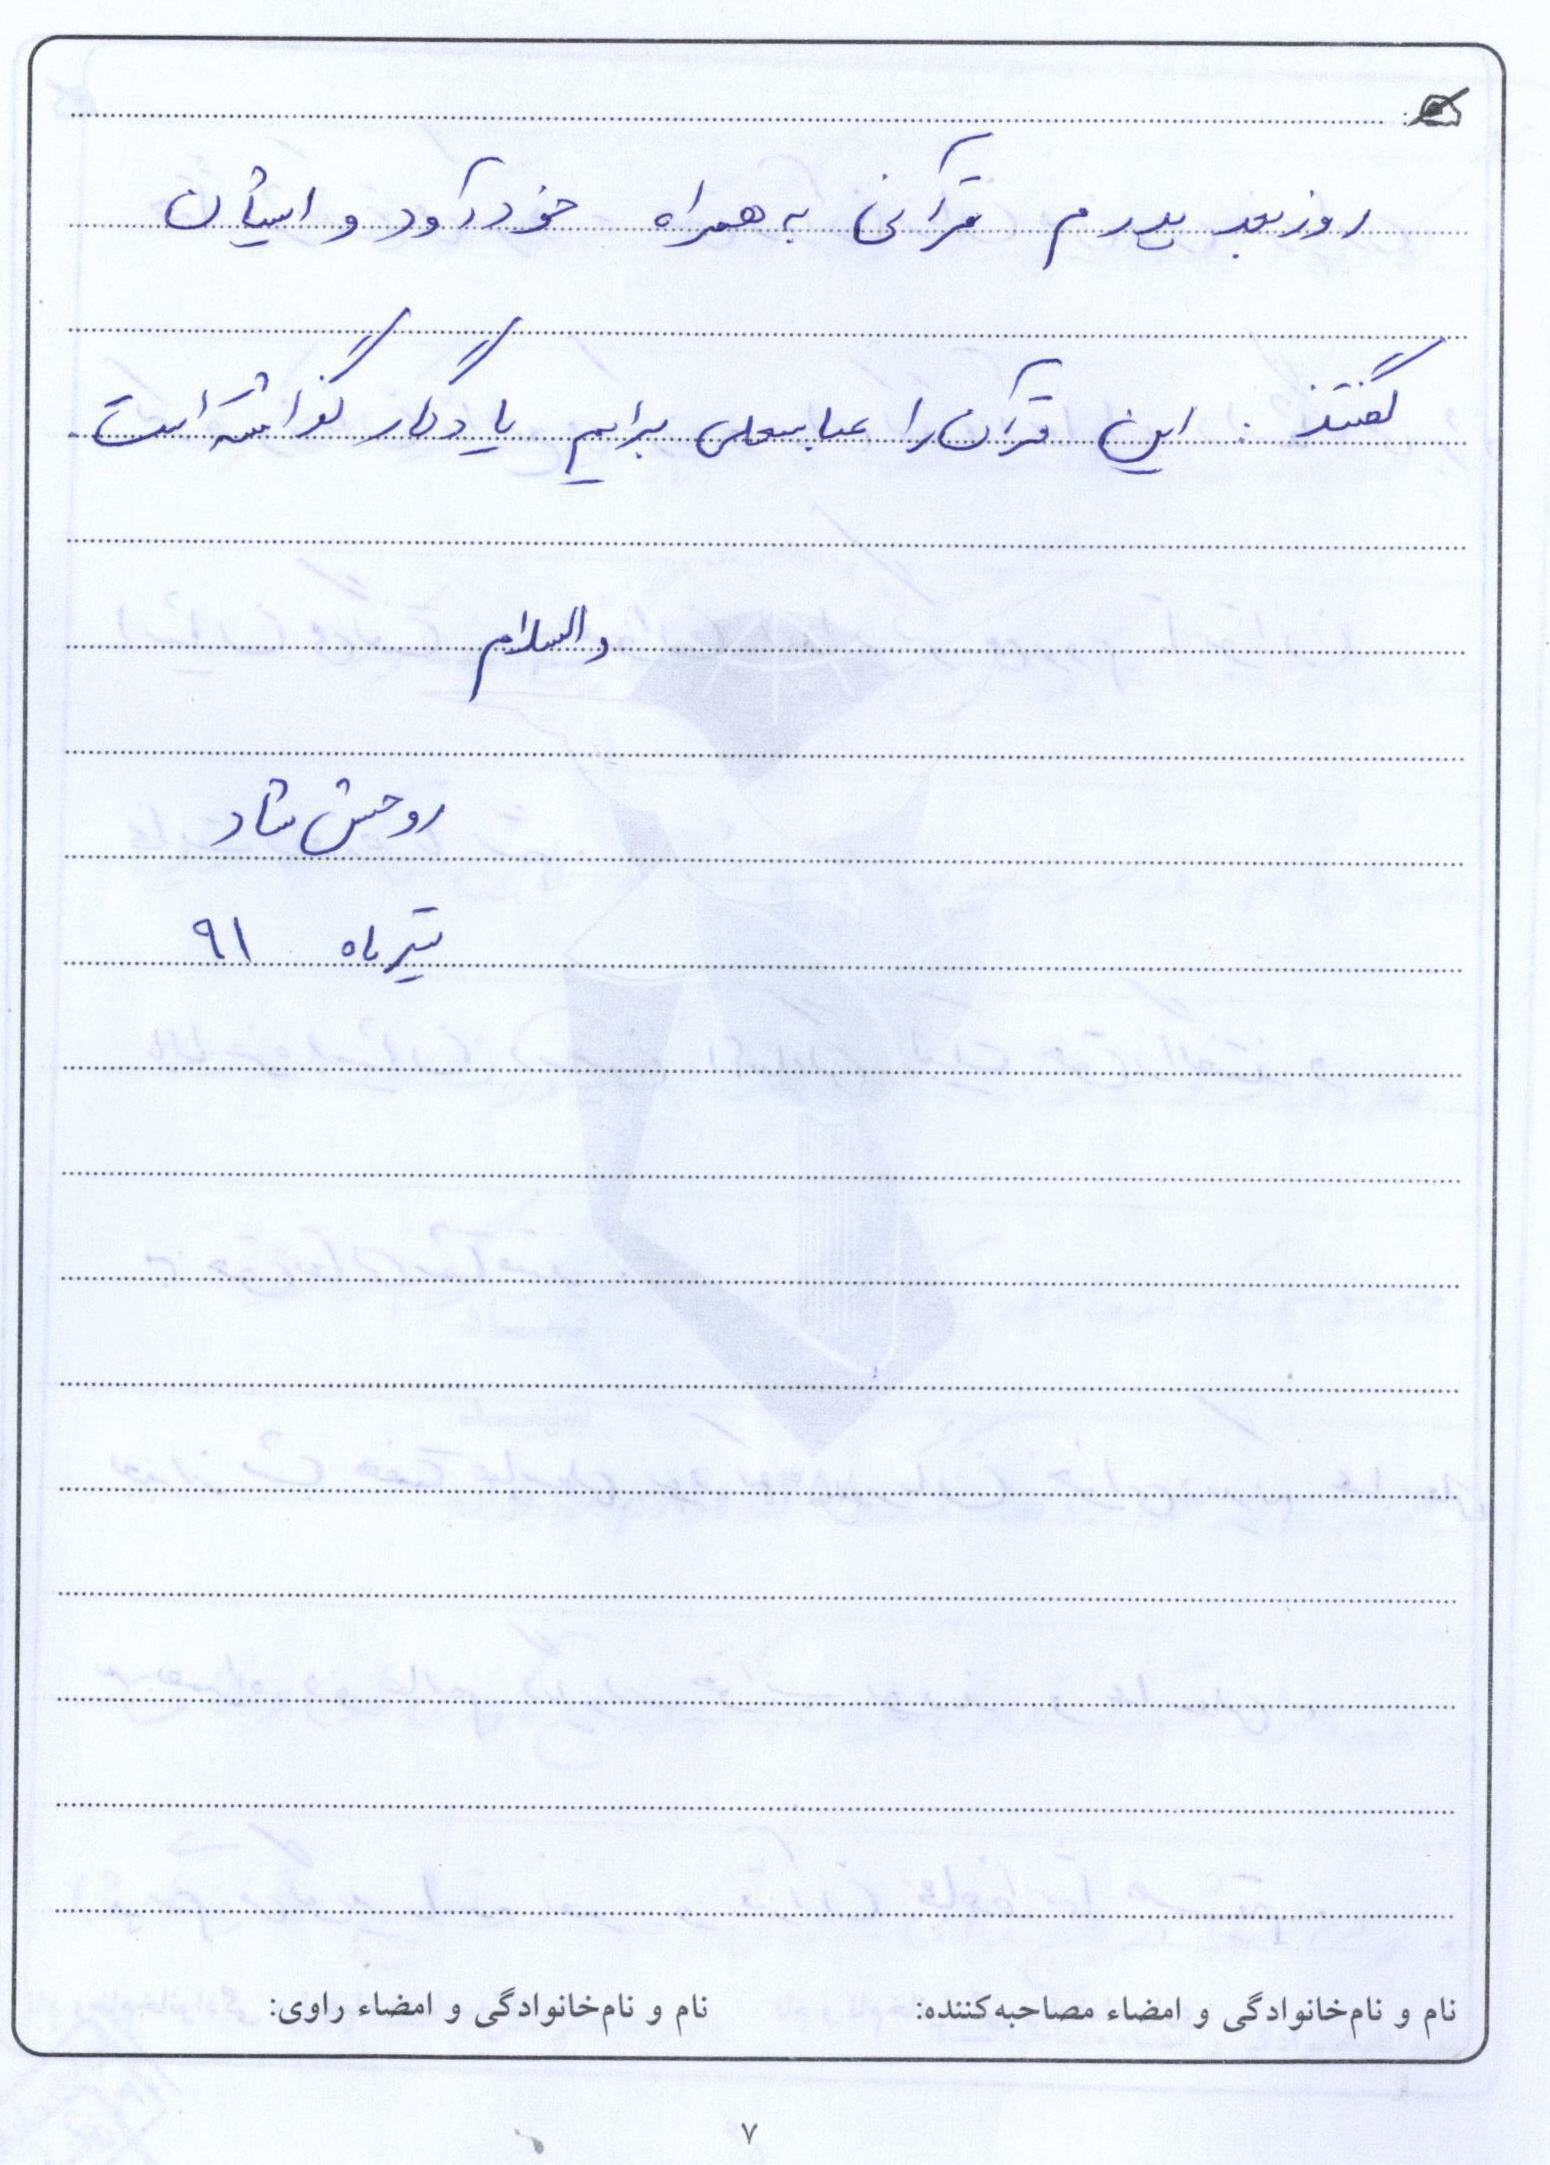 روز بعد پدرم قرآنی به همراه خود آورد و ایشان
گفتند: این قرآن را عباسعلی برایم یادگار گذاشته است
والسلام
روحش شاد
تیر ماه ۹۱
نام و نام‌خانوادگی و امضاء مصاحبه‌کننده: نام و نام‌خانوادگی و امضاء راوی:
۷